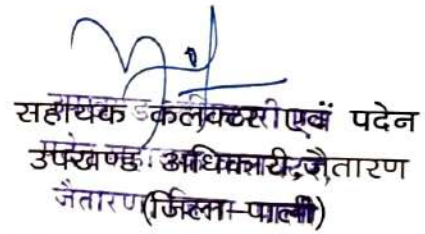 सहायक कलेक्टर एवं पदेन
उपखण्ड अधिकारी, जैतारण
जैतारण (जिला-पाली)